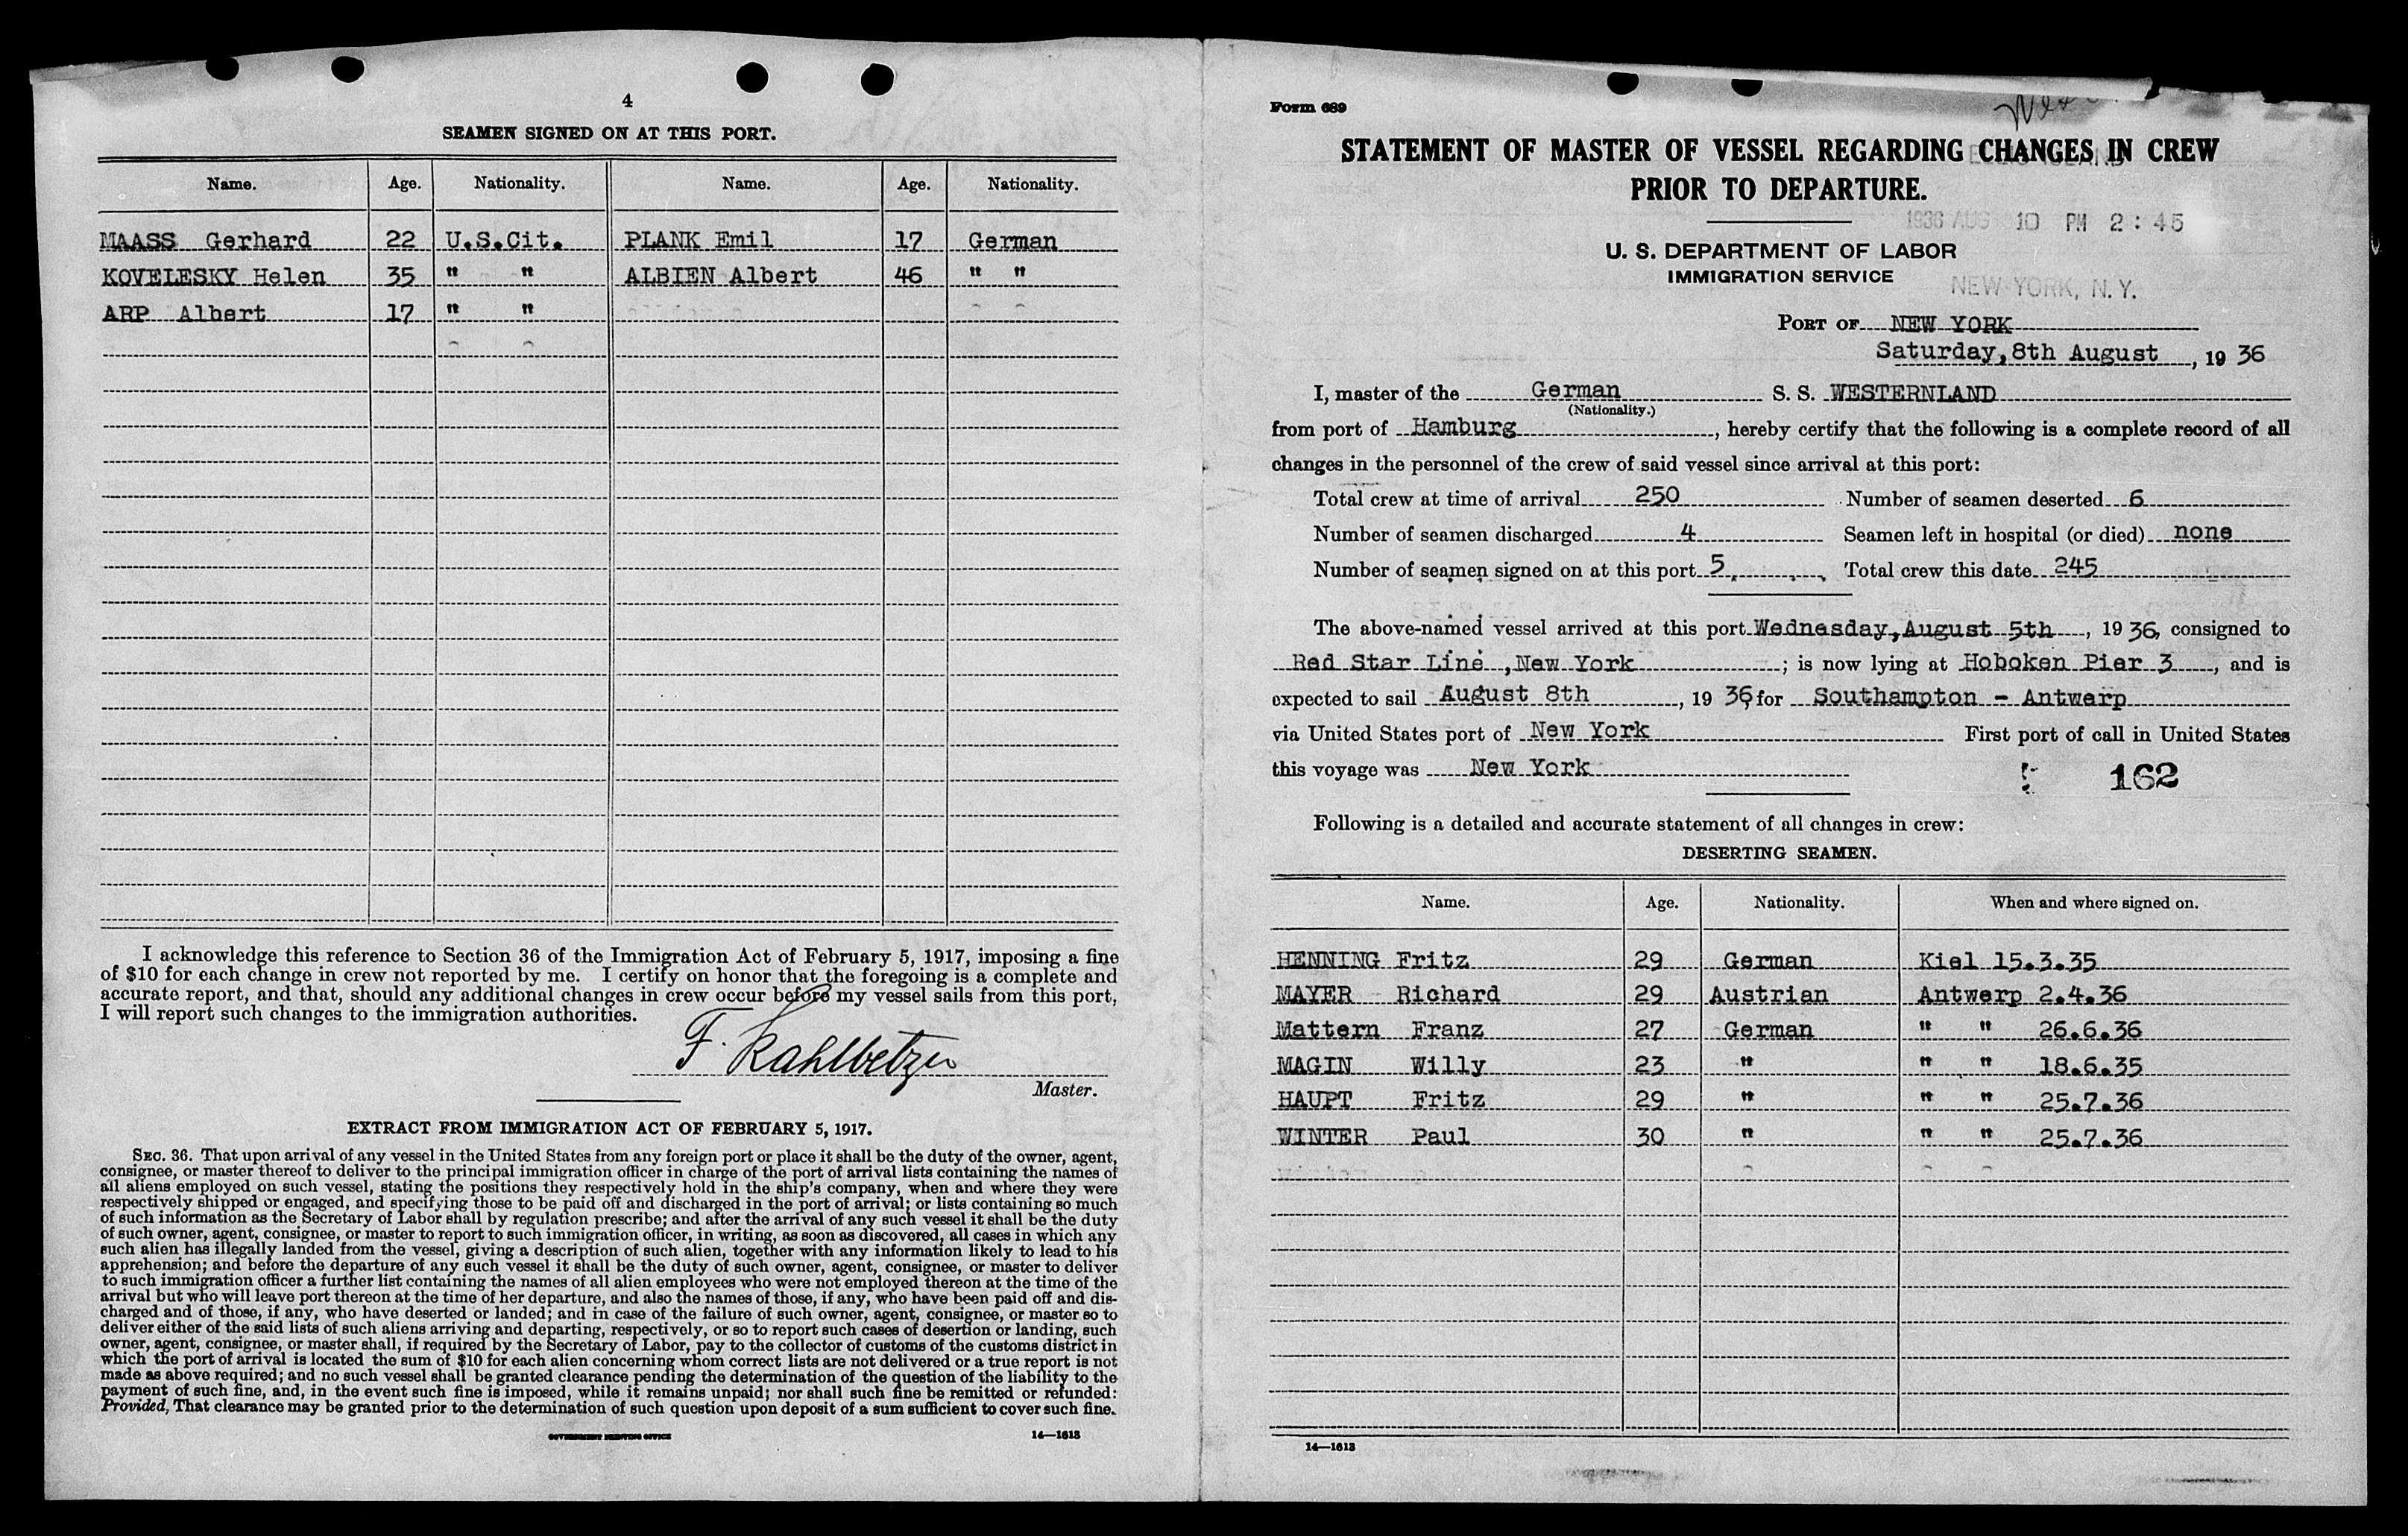 4
SEAMEN SIGNED ON AT THIS PORT.
Name. Age. Nationality. Name. Age. Nationality.
MAASS Gerhard 22 U.S.Cit. PLANK Emil 17 German
KOVELESKY Helen 35 " " ALBIEN Albert 46 " "
ARP Albert 17 " "
I acknowledge this reference to Section 36 of the Immigration Act of February 5, 1917, imposing a fine
of $10 for each change in crew not reported by me. I certify on honor that the foregoing is a complete and
accurate report, and that, should any additional changes in crew occur before my vessel sails from this port,
I will report such changes to the immigration authorities.
F. Kahlbetzer
Master.
EXTRACT FROM IMMIGRATION ACT OF FEBRUARY 5, 1917.
SEC. 36. That upon arrival of any vessel in the United States from any foreign port or place it shall be the duty of the owner, agent,
consignee, or master thereof to deliver to the principal immigration officer in charge of the port of arrival lists containing the names of
all aliens employed on such vessel, stating the positions they respectively hold in the ship's company, when and where they were
respectively shipped or engaged, and specifying those to be paid off and discharged in the port of arrival; or lists containing so much
of such information as the Secretary of Labor shall by regulation prescribe; and after the arrival of any such vessel it shall be the duty
of such owner, agent, consignee, or master to report to such immigration officer, in writing, as soon as discovered, all cases in which any
such alien has illegally landed from the vessel, giving a description of such alien, together with any information likely to lead to his
apprehension; and before the departure of any such vessel it shall be the duty of such owner, agent, consignee, or master to deliver
to such immigration officer a further list containing the names of all alien employees who were not employed thereon at the time of the
arrival but who will leave port thereon at the time of her departure, and also the names of those, if any, who have been paid off and dis-
charged and of those, if any, who have deserted or landed; and in case of the failure of such owner, agent, consignee, or master so to
deliver either of the said lists of such aliens arriving and departing, respectively, or so to report such cases of desertion or landing, such
owner, agent, consignee, or master shall, if required by the Secretary of Labor, pay to the collector of customs of the customs district in
which the port of arrival is located the sum of $10 for each alien concerning whom correct lists are not delivered or a true report is not
made as above required; and no such vessel shall be granted clearance pending the determination of the question of the liability to the
payment of such fine, and, in the event such fine is imposed, while it remains unpaid; nor shall such fine be remitted or refunded:
Provided, That clearance may be granted prior to the determination of such question upon deposit of a sum sufficient to cover such fine.
GOVERNMENT PRINTING OFFICE 14—1613
Form 689
STATEMENT OF MASTER OF VESSEL REGARDING CHANGES IN CREW
PRIOR TO DEPARTURE.
1936 AUG 10 PM 2:45
U. S. DEPARTMENT OF LABOR
IMMIGRATION SERVICE
NEW YORK, N.Y.
PORT OF NEW YORK
Saturday, 8th August, 19 36
I, master of the German S. S. WESTERNLAND
(Nationality.)
from port of Hamburg, hereby certify that the following is a complete record of all
changes in the personnel of the crew of said vessel since arrival at this port:
Total crew at time of arrival 250 Number of seamen deserted 6
Number of seamen discharged 4 Seamen left in hospital (or died) none
Number of seamen signed on at this port 5 Total crew this date 245
The above-named vessel arrived at this port Wednesday, August 5th, 19 36, consigned to
Red Star Line, New York; is now lying at Hoboken Pier 3, and is
expected to sail August 8th, 19 36, for Southampton - Antwerp
via United States port of New York First port of call in United States
this voyage was New York
162
Following is a detailed and accurate statement of all changes in crew:
DESERTING SEAMEN.
Name. Age. Nationality. When and where signed on.
HENNING Fritz 29 German Kiel 15.3.35
MAYER Richard 29 Austrian Antwerp 2.4.36
Mattern Franz 27 German " " 26.6.36
MAGIN Willy 23 " " " 18.6.35
HAUPT Fritz 29 " " " 25.7.36
WINTER Paul 30 " " " 25.7.36
14—1613